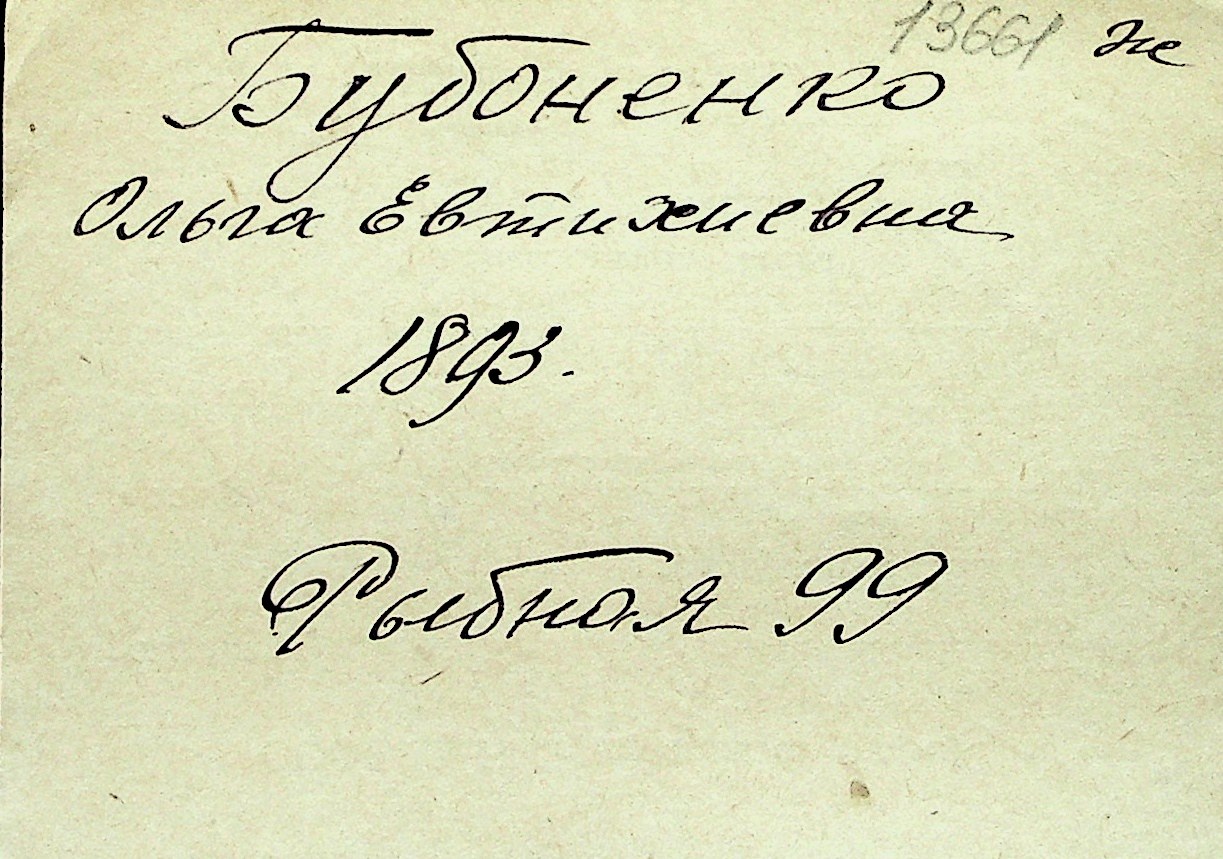 13661 ж
Бубоненко
Ольга Евтихиевна
1893.
Рыбная 99